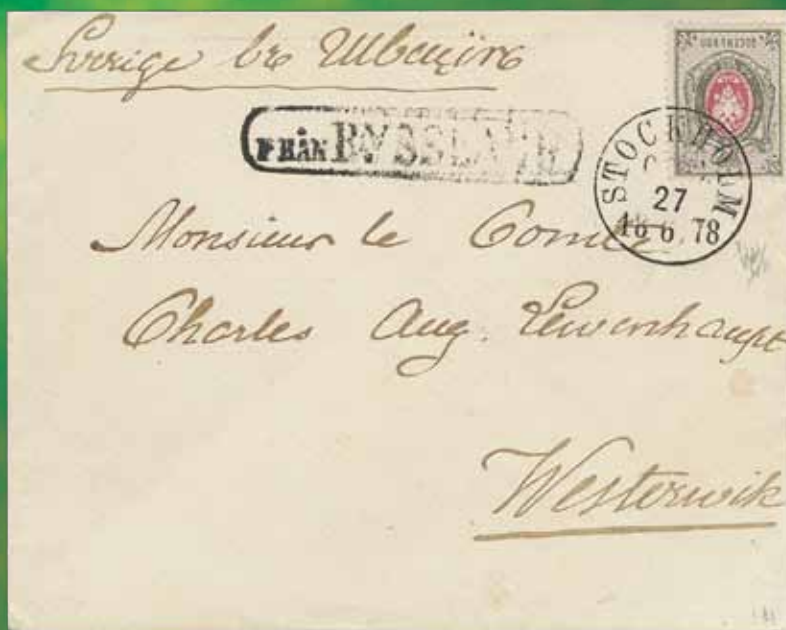 Sverige въ Швецiю
FRÅN RYSSLAND
STOCKHOLM
27
18 6 78
Monsieur le Comte
Charles Aug. Lewenhaupt
Westerwik